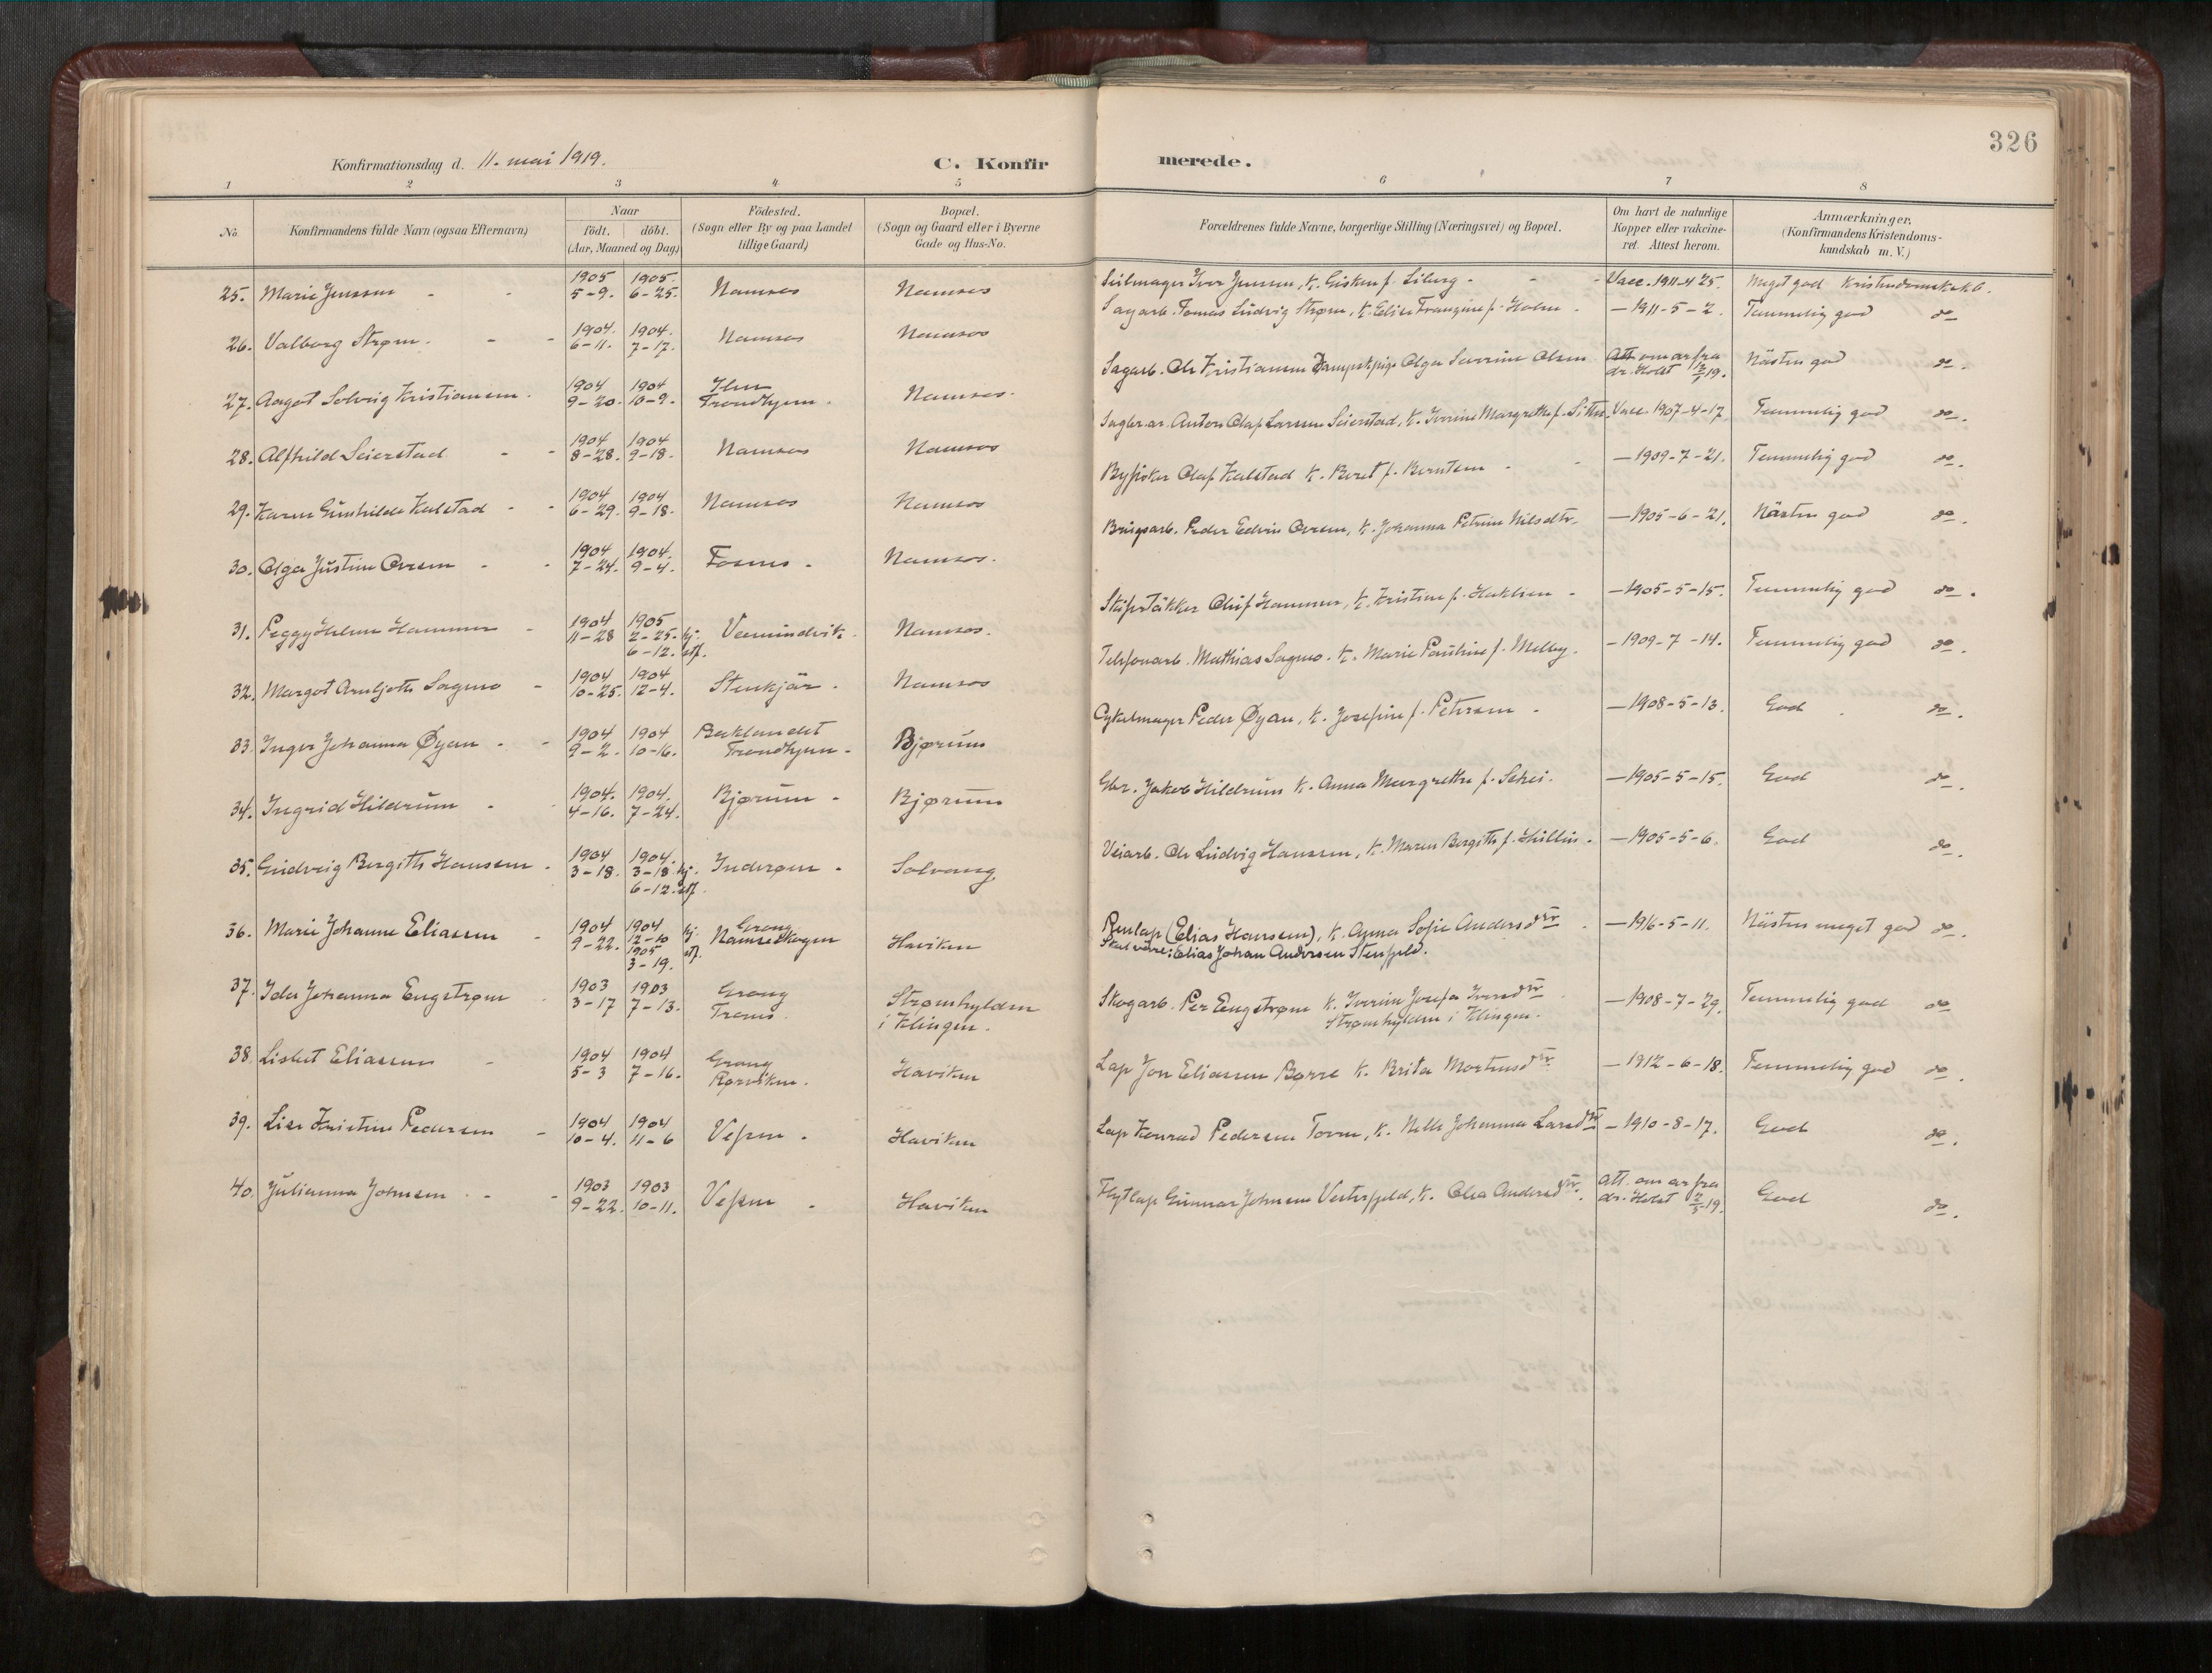 326
Konfirmationsdag d. 11. mai 1919.
C. Konfirmerede.
1 2 3 4 5 6 7 8
No. Konfirmandens fulde Navn (ogsaa Efternavn) Naar födt. döbt. (Aar, Maaned og Dag) Födested. (Sogn eller By og paa Landet tillige Gaard) Bopæl. (Sogn og Gaard eller i Byerne Gade og Hus-No. Forældrenes fulde Navne, borgerlige Stilling (Næringsvei) og Bopæl. Om havt de naturlige Kopper eller vakcineret. Attest herom. Anmærkninger. (Konfirmandens Kristendomskundskab m. V.)
25. Marie Jenssen - - 1905 5-9. 1905. 6-25. Namsos Namsos Seilmager Iver Jenssen, k. f. - Vacc. 1911-4-25. Meget god Kristendomskskb.
26. Valborg Strøm. - - 1904. 6-11. 1904. 7-17. Namsos Namsos Sagarb. Tomas Ludvig Strøm, k. f. Holm - -1911-5-2. Temmelig god do
27. Aagot Solveig Kristiansen. 1904 9-20. 1904 10-9. Ilen Trondhjem. Namsos. Sagarb. Ole Kristiansen Olga Severine Olsen Att. om ar fra dr. Holst 2/5 19. Nästen god do.
28. Alfhild Seierstad - - 1904 8-28. 1904 9-18. Namsos Namsos Anton Olaf Larssen Seierstad, k. Margrethe f. Vacc. 1907-4-17. Temmelig god do.
29. Karen Gunhilde Kalstad - - 1904 6-29. 1904 9-18. Namsos Namsos Olaf Kalstad k. Beret f. Berntsen - - -1909-7-21. Temmelig god do.
30. Olga Justine Ovesen - - 1904 7-24. 1904. 9-4. Fosnes - Namsos. Brugsarb. Peder Edvin Ovesen, k. Johanna Petrine Nilsdtr. -1905-6-21. Nästen god do.
31. Peggy Helene Hammer - 1904 11-28 1905 2-25. hj. 6-12. stf. Vemundvik. Namsos. Oluf Hammer, k. Kristine f. Haklien - -1905-5-15. Temmelig god do.
32. Margot Arnljoth Sagmo - 1904 10-25. 1904 12-4. Stenkjär. Namsos Telefonarb. Mathias Sagmo. k. Marie Pauline f. Melby. -1909-7-14. Temmelig god do.
33. Inger Johanna Øyan - - 1904 9-2. 1904 10-16. Baklandet Trondhjem - Bjørum Cykelmager Peder Øyan, k. Josefine f. Petersen - -1908-5-13. God do.
34. Ingrid Hildrum - - 1904. 4-16. 1904. 7-24. Bjørum - Bjørum Gbr. Jakob Hildrum k. Anna Margrethe f. -1905-5-15. God do.
35. Gudveig Bergith Hanssen - 1904 3-18. 1904. 3-18 hj. 6-12. stf. Inderøen - Solvang. Veiarb. Ole Ludvig Hanssen, k. Maren Bergith f. - -1905-5-6. God do.
36. Marie Johanne Eliassen - 1904 9-22. 1904 12-10 hj. 1905 3-19. stf. Grong Namsskogen Haviken Renlap (Elias Hanssen), k. Anna Sofie Andersdtr - -1916-5-11. Nästen meget god do.
Skal väre: Elias Johan Andersen Stenfjeld.
37. Ida Johanna Engstrøm 1903 3-17 1903 7-13. Grong Trones. Strømhylden i Klingen. Skogarb. Per Engstrøm k. Iverine Josefa Iversdtr Strømhylden i Klingen. -1908-7-29. Temmelig god do
38. Lisbet Eliassen - 1904 5-3 1904 7-16. Grong Rørviken. Haviken Lap Jon Eliassen Børre k. Brita Mortensdtr -1912-6-18. Temmelig god do.
39. Lise Kristine Pedersen - 1904 10-4. 1904 11-6 Vefsen. Haviken Lap Konrad Pedersen k. Johanna Larsdtr -1910-8-17. God do.
40. Julianna Johnsen. - - 1903 9-22. 1903 10-11. Vefsen - Haviken Flytlap Gunnar Johnsen Vesterfjeld, k. Olea Andersdtr. Att. om ar fra dr. Holst 2/5 19. God do.